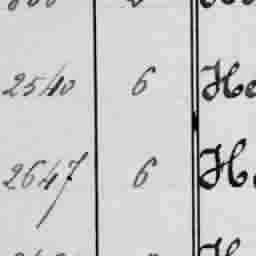 2540 6 He
2647 6 H